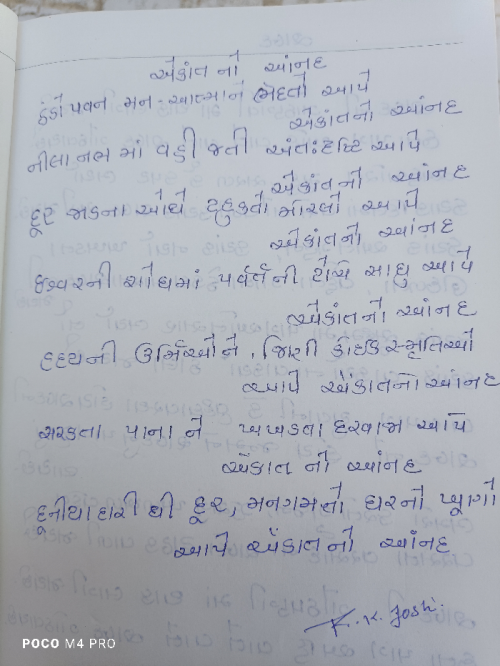 એકાંત નો આંનદ
ઠંડો પવન મન-આત્માને ભેદતો આપે
એકાંતનો આંનદ
નીલા નભ માં વહી જતી અંત:દ્દષ્ટિ આપે
એકાંતનો આંનદ
દૂર જાડના ઓથે ટહુકતો મોરલો આપે
એકાંતનો આંનદ
ઇશ્વરની શોધમાં પર્વતની ટોચે સાધુ આપે
એકાંતનો આંનદ
હ્દયની ઉર્મિઓને, જિણી કંઇક સ્મૃતિઓ
આપે એકાંતનો આંનદ
સરકતા પાના ને ખખડતા દરવાજા આપે
એકાંત નો આંનદ
દૂનીયાદારી થી દૂર, મનગમતો ઘરનો ખૂણો
આપે એકાંતનો આંનદ
K. K. Joshi
POCO M4 PRO